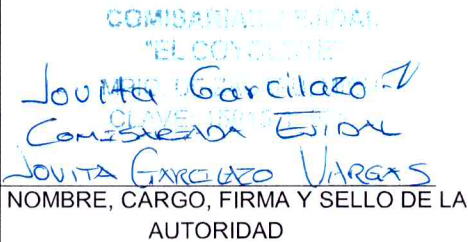 COMISARIADO EJIDAL
"EL
Jovita Garcilazo V
CLAVE
COMISARIADA EJIDAL
JOVITA GARCILAZO VARGAS
NOMBRE, CARGO, FIRMA Y SELLO DE LA
AUTORIDAD